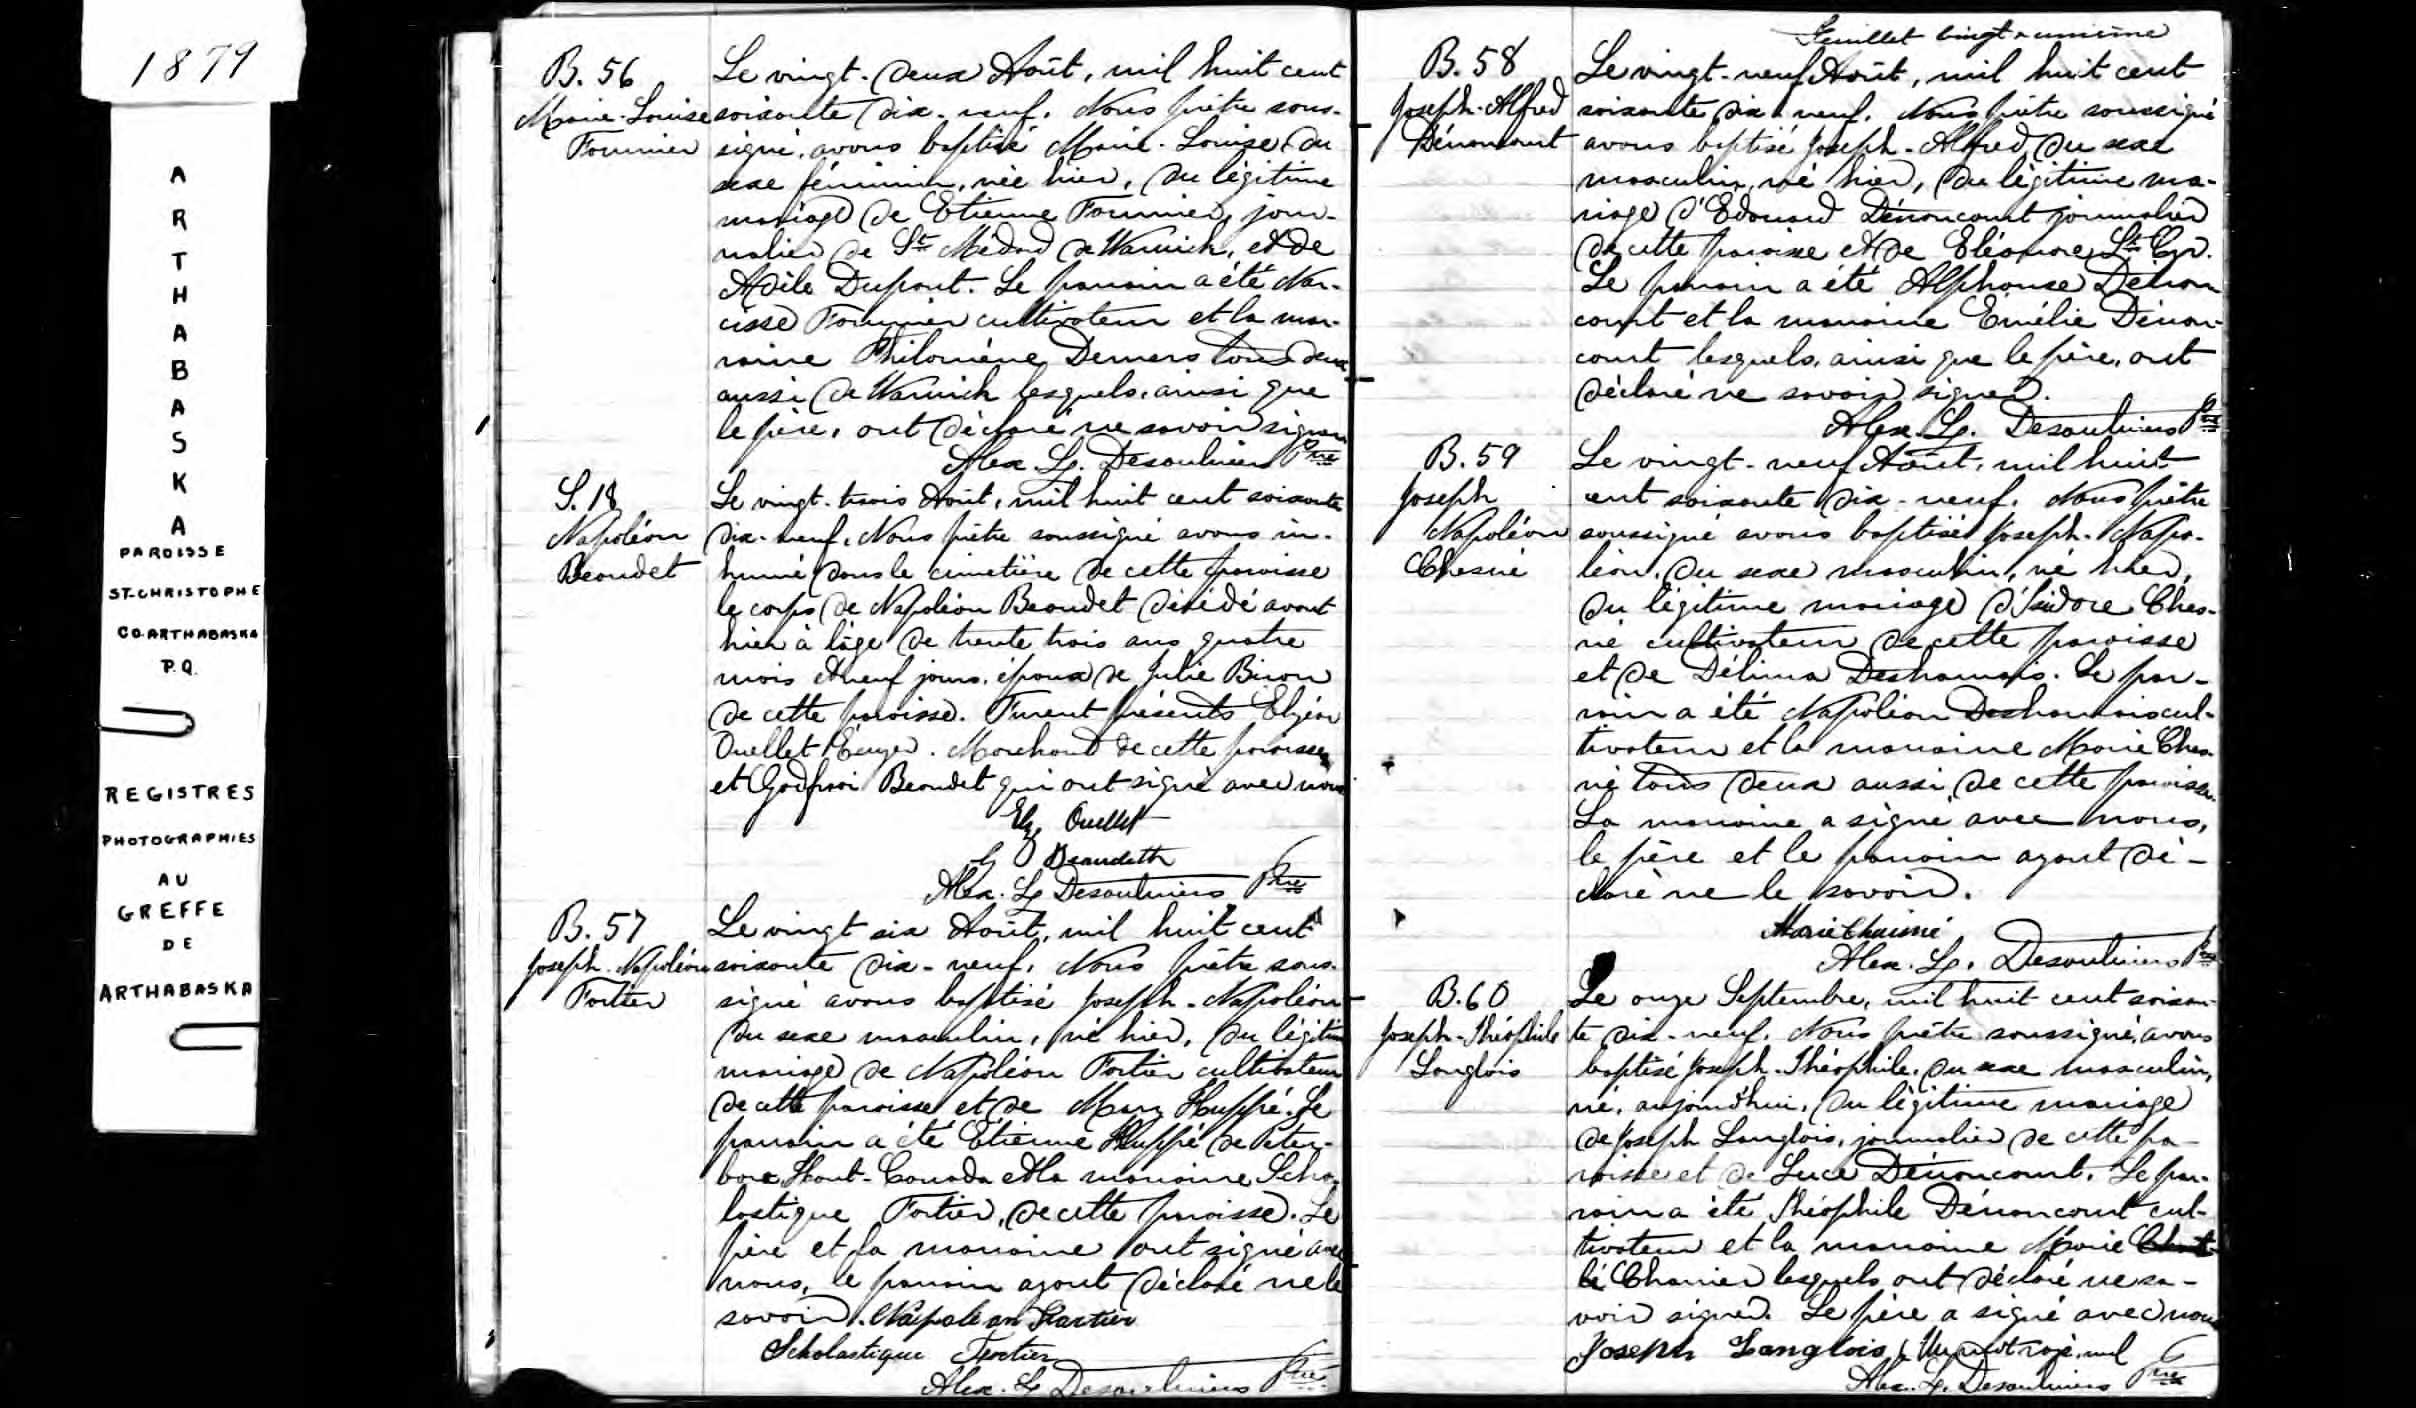 1879
A
R
T
H
A
B
A
S
K
A
PAROISSE
ST-CHRISTOPHE
CO. ARTHABASKA
P.Q.
REGISTRES
PHOTOGRAPHIES
AU
GREFFE
DE
ARTHABASKA
B. 56
Marie-Louise
Fournier
Le vingt-deux Août, mil huit cent
soixante dix-neuf. Nous prêtre sous-
signé, avons baptisé Marie-Louise, du
sexe féminin, née hier, du légitime
mariage de Etienne Fournier, jour-
nalier de St Médard de Warwick, et de
Adèle Dupont. Le parrain a été Nar-
cisse Fournier cultivateur et la mar-
raine Philomène Demers tous deux
aussi de Warwick lesquels, ainsi que
le père, ont déclaré ne savoir signer
Alex. Ls. Desaulniers Ptre
S. 18
Napoléon
Beaudet
Le vingt-trois Août, mil huit cent soixante
dix-neuf, Nous prêtre soussigné avons in-
humé dans le cimetière de cette paroisse
le corps de Napoléon Beaudet décédé avant
hier à l'âge de trente trois ans quatre
mois et neuf jours, époux de Julie Biron
de cette paroisse. Furent présents Elzéar
Ouellet Écuyer. Marchand de cette paroisse
et Godfroi Beaudet qui ont signé avec nous
Elz Ouellet
G Beaudette
Alex. Ls Desaulniers Ptre
B. 57
Joseph-Napoléon
Fortier
Le vingt six Août, mil huit cent
soixante dix-neuf, Nous prêtre sous-
signé avons baptisé Joseph-Napoléon
du sexe masculin, né hier, du légitime
mariage de Napoléon Fortier cultivateur
de cette paroisse et de Mary Huppé. Le
parrain a été Etienne Huppé de Peter-
boro, Haut-Canada et la marraine Scho-
lastique Fortier, de cette paroisse. Le
père et la marraine ont signé avec
nous, le parrain ayant déclaré ne le
savoir. Napoleon Fartier
Scholastique Fortier
Alex. Ls Desaulniers Ptre
Feuillet vingt-unième
B. 58
Joseph-Alfred
Dénoncourt
Le vingt-neuf Août, mil huit cent
soixante dix neuf. Nous prêtre soussigné
avons baptisé Joseph-Alfred, du sexe
masculin, né hier, du légitime ma-
riage d'Edouard Dénoncourt journalier
de cette paroisse et de Eléonore St Cyr.
Le parrain a été Alphonse Dénon
court et la marraine Emélie Dénon-
court lesquels, ainsi que le père, ont
déclaré ne savoir signer.
Alex. Ls. Desaulniers Ptre
B. 59
Joseph
Napoléon
Chesné
Le vingt-neuf Août, mil huit
cent soixante dix-neuf. Nous prêtre
soussigné avons baptisé Joseph-Napo-
léon, du sexe masculin, né hier,
du légitime mariage d'Isidore Ches-
né cultivateur de cette paroisse
et de Délima Desharnais. Le par-
rain a été Napoléon Desharnais cul-
tivateur et la marraine Marie Ches-
né tous deux aussi de cette paroisse.
La marraine a signé avec nous,
le père et le parrain ayant dé-
claré ne le savoir.
Marie Chaisné
Alex. Ls. Desaulniers Ptre
B. 60
Joseph-Théophile
Langlois
Le onze Septembre, mil huit cent soixan-
te dix-neuf. Nous prêtre soussigné, avons
baptisé Joseph-Théophile, du sexe masculin,
né, aujourd'hui, du légitime mariage
de Joseph Langlois, journalier de cette pa-
roisse et de Luce Dénoncourt. Le par-
rain a été Théophile Dénoncourt cul-
tivateur et la marraine Marie
Charrier lesquels ont déclaré ne sa-
voir signer. Le père a signé avec nous
Joseph Langlois, Un mot rayé nul
Alex. Ls. Desaulniers Ptre